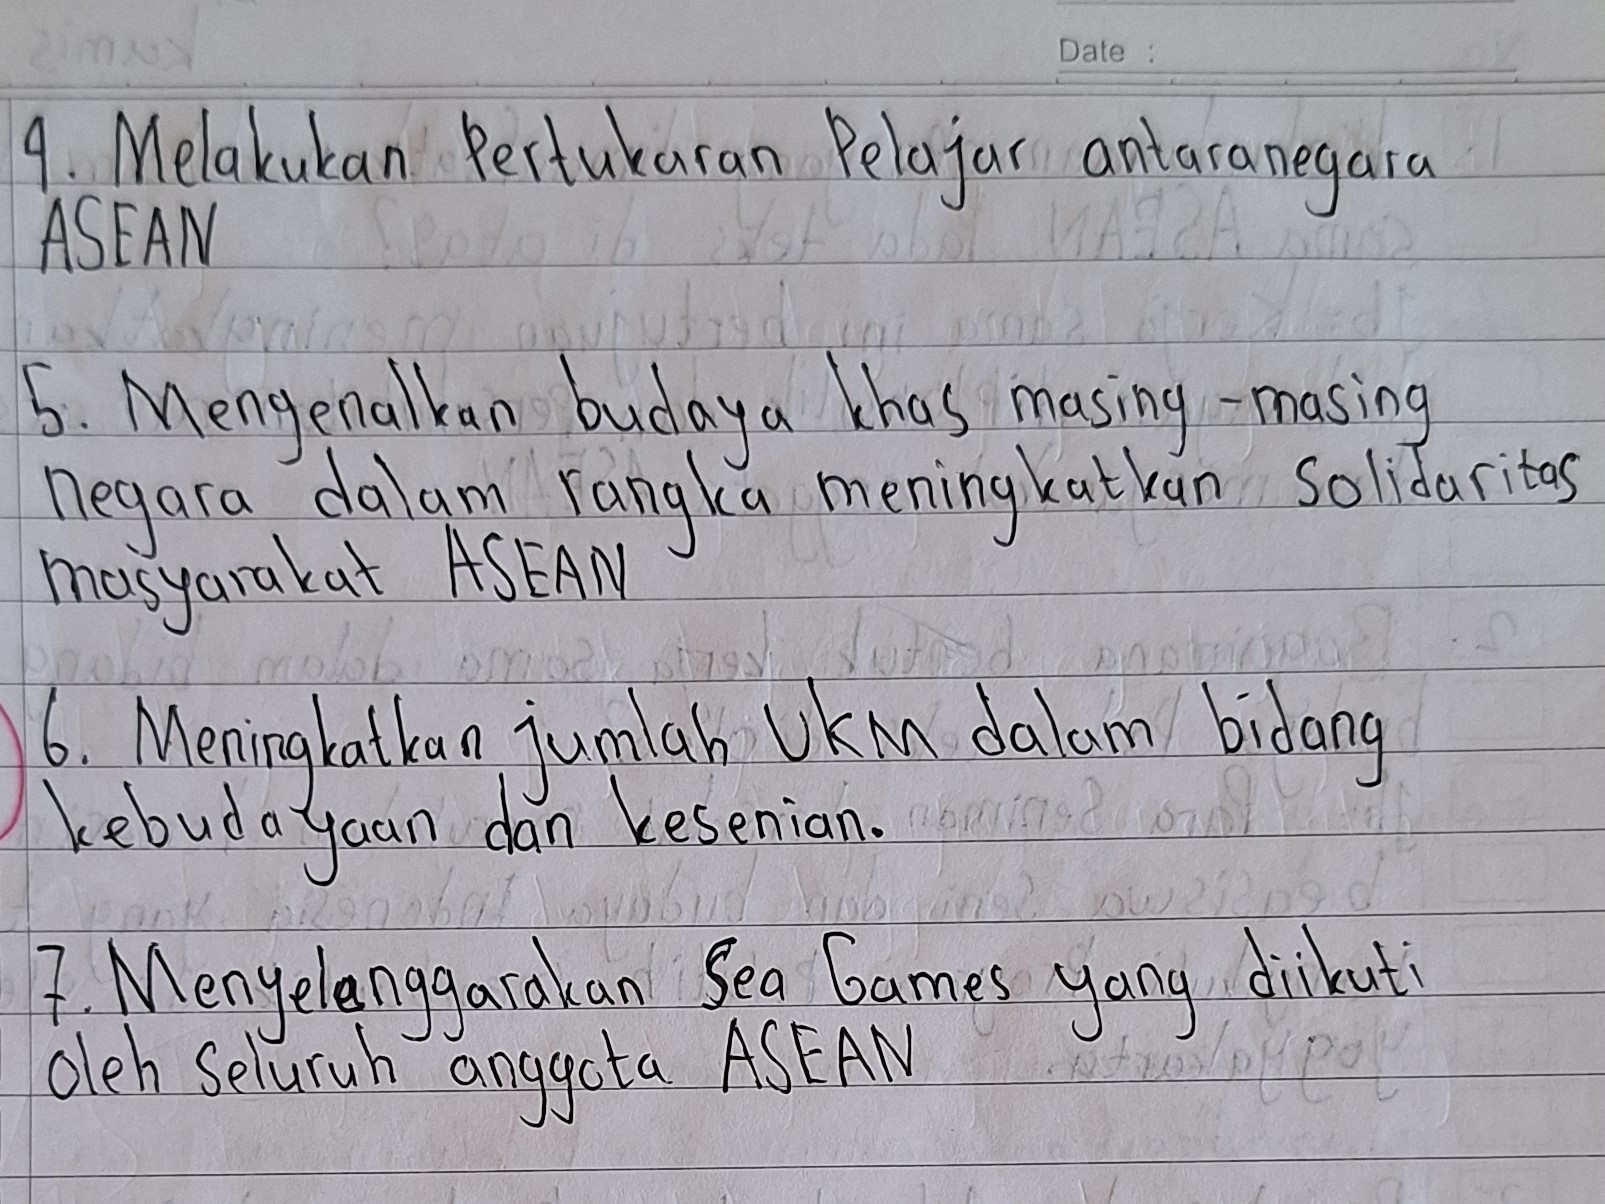 Date :
4. Melakukan Pertukaran Pelajar antaranegara
ASEAN
5. Mengenalkan budaya khas masing-masing
negara dalam rangka meningkatkan Solidaritas
masyarakat ASEAN
6. Meningkatkan jumlah UKM dalam bidang
kebudayaan dan kesenian.
7. Menyelenggarakan Sea Games yang diikuti
oleh Seluruh anggota ASEAN